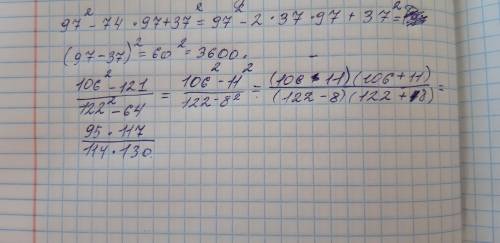 97² - 74 · 97 + 37² = 97² - 2 · 37 · 97 + 37² =
(97 - 37)² = 60² = 3600.
(106² - 121)/(122² - 64) = (106² - 11²)/(122 - 8²) = ((106 - 11)(106 + 11))/((122 - 8)(122 + 8)) =
(95 · 117)/(114 · 130)